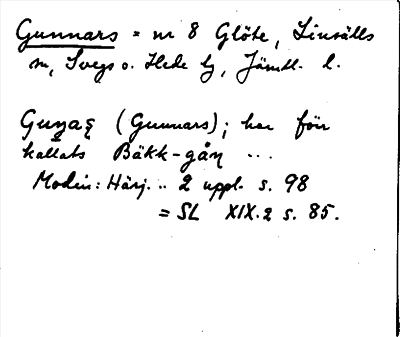 Gunnars = nr 8 Glöte, Linsälls
sn, Svegs o. Hede tg, Jämtl. l.
Guṉaṣ (Gunnars); har förr
kallats Bäkk-gån ...
Modin: Härj. .. 2 uppl. s. 98
= SL XIX.2 s. 85.